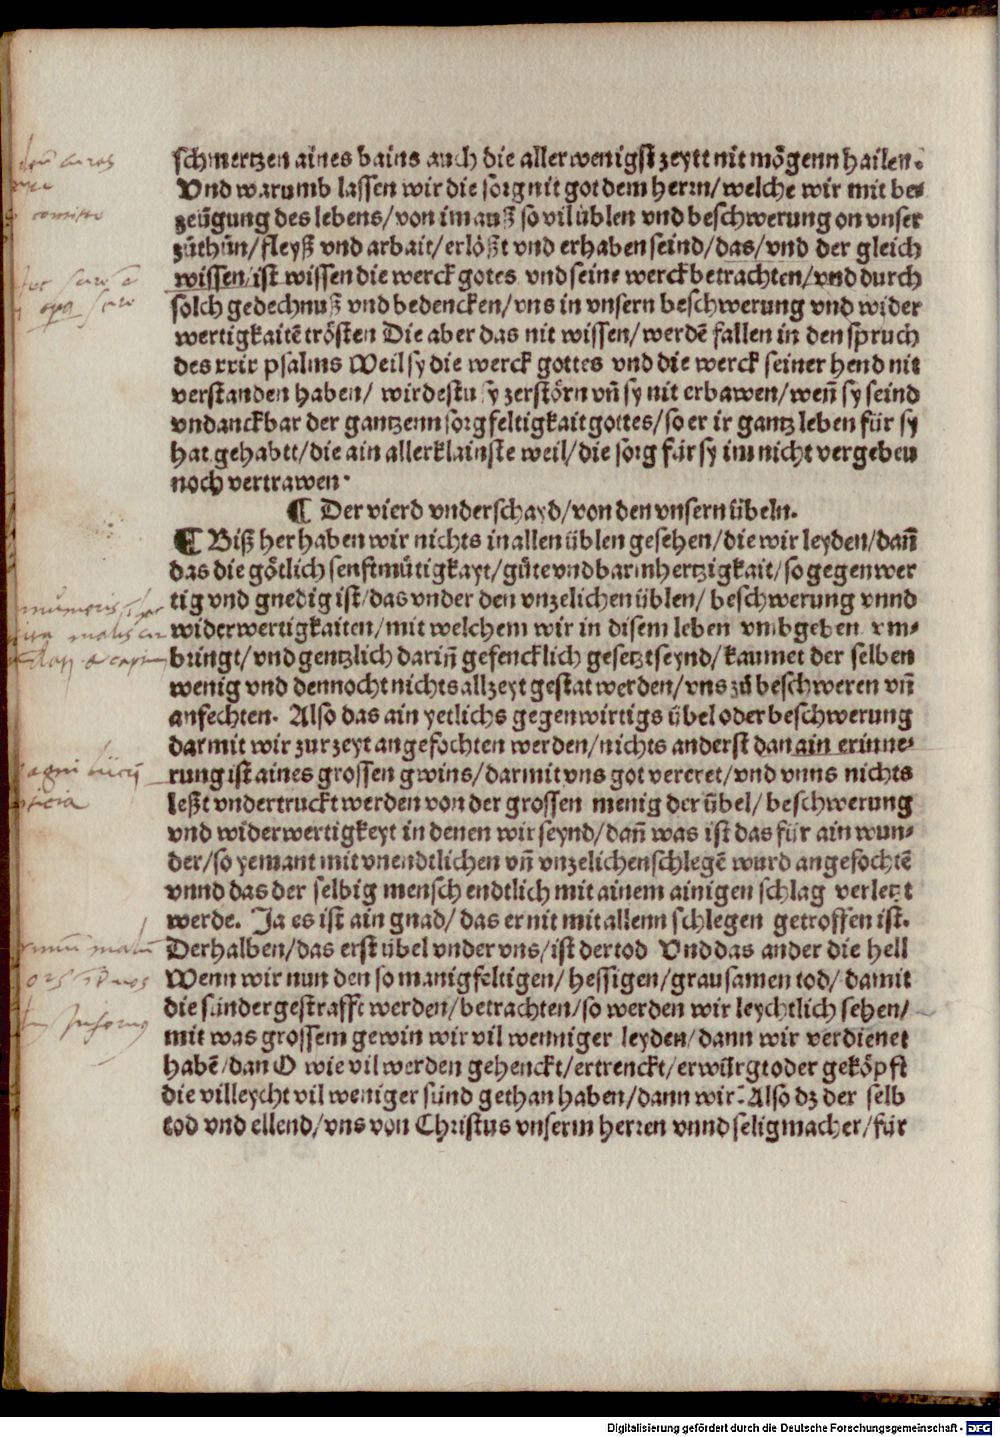 schmertzen aines bains auch die aller wenigst zeytt nit mögenn hailen.
Vnd warumb lassen wir die sorg nit got dem herrn/welche wir mit be⸗
zeügung des lebens/von im auß so vil üblen vnd beschwerung on vnser
zůthůn/fleyß vnd arbait/erlößt vnd erhaben seind/das/vnd der gleich
wissen/ist wissen die werck gotes vnd seine werck betrachten/vnd durch
solch gedechnuß vnd bedencken/vns in vnsern beschwerung vnd wider
wertigkaitē trösten Die aber das nit wissen/werdē fallen in den spruch
des xxix psalms Weil sy die werck gottes vnd die werck seiner hend nit
verstanden haben/ wirdestu sy zerstörn vñ sy nit erbawen/weñ sy seind
vndanckbar der gantzenn sorgfeltigkait gottes/so er ir gantz leben für sy
hat gehabtt/die ain allerklainste weil/die sorg für sy im nicht vergeben
noch vertrawen.
¶ Der vierd vnderschayd/von den vnsern übeln.
¶ Biß her haben wir nichts in allen üblen gesehen/die wir leyden/dañ
das die götlich senftmütigkayt/güte vnd barmhertzigkait/so gegenwer
tig vnd gnedig ist/das vnder den vnzelichen üblen/ beschwerung vnnd
widerwertigkaiten/mit welchem wir in disem leben vmbgeben vm⸗
bringt/vnd gentzlich dariñ gefencklich gesetzt seynd/kaumet der selben
wenig vnd dennocht nichts allzeyt gestat werden/vns zů beschweren vñ
anfechten. Also das ain yetlichs gegenwirtigs übel oder beschwerung
darmit wir zur zeyt angefochten werden/nichts anderst dan ain erinne⸗
rung ist aines grossen gwins/darmit vns got vereret/vnd vnns nichts
leßt vndertruckt werden von der grossen menig der übel/beschwerung
vnd widerwertigkeyt in denen wir seynd/dañ was ist das für ain wun⸗
der/so yemant mit vnendtlichen vñ vnzelichen schlegē wurd angefochtē
vnnd das der selbig mensch endtlich mit ainem ainigen schlag verletzt
werde. Ja es ist ain gnad/ das er nit mit allenn schlegen getroffen ist.
Derhalben/das erst übel vnder vns/ist der tod Vnd das ander die hell
Wenn wir nun den so manigfeltigen/hessigen/grausamen tod/damit
die sünder gestrafft werden/betrachten/so werden wir leychtlich sehen/
mit was grossem gewin wir vil wenniger leyden/dann wir verdienet
habē/dan O wie vil werden gehenckt/ertrenckt/erwürgt oder geköpft
die villeycht vil weniger sünd gethan haben/dann wir: Also dz der selb
tod vnd ellend/vns von Christus vnserm herren vnnd seligmacher/für
Digitalisierung gefördert durch die Deutsche Forschungsgemeinschaft - DFG